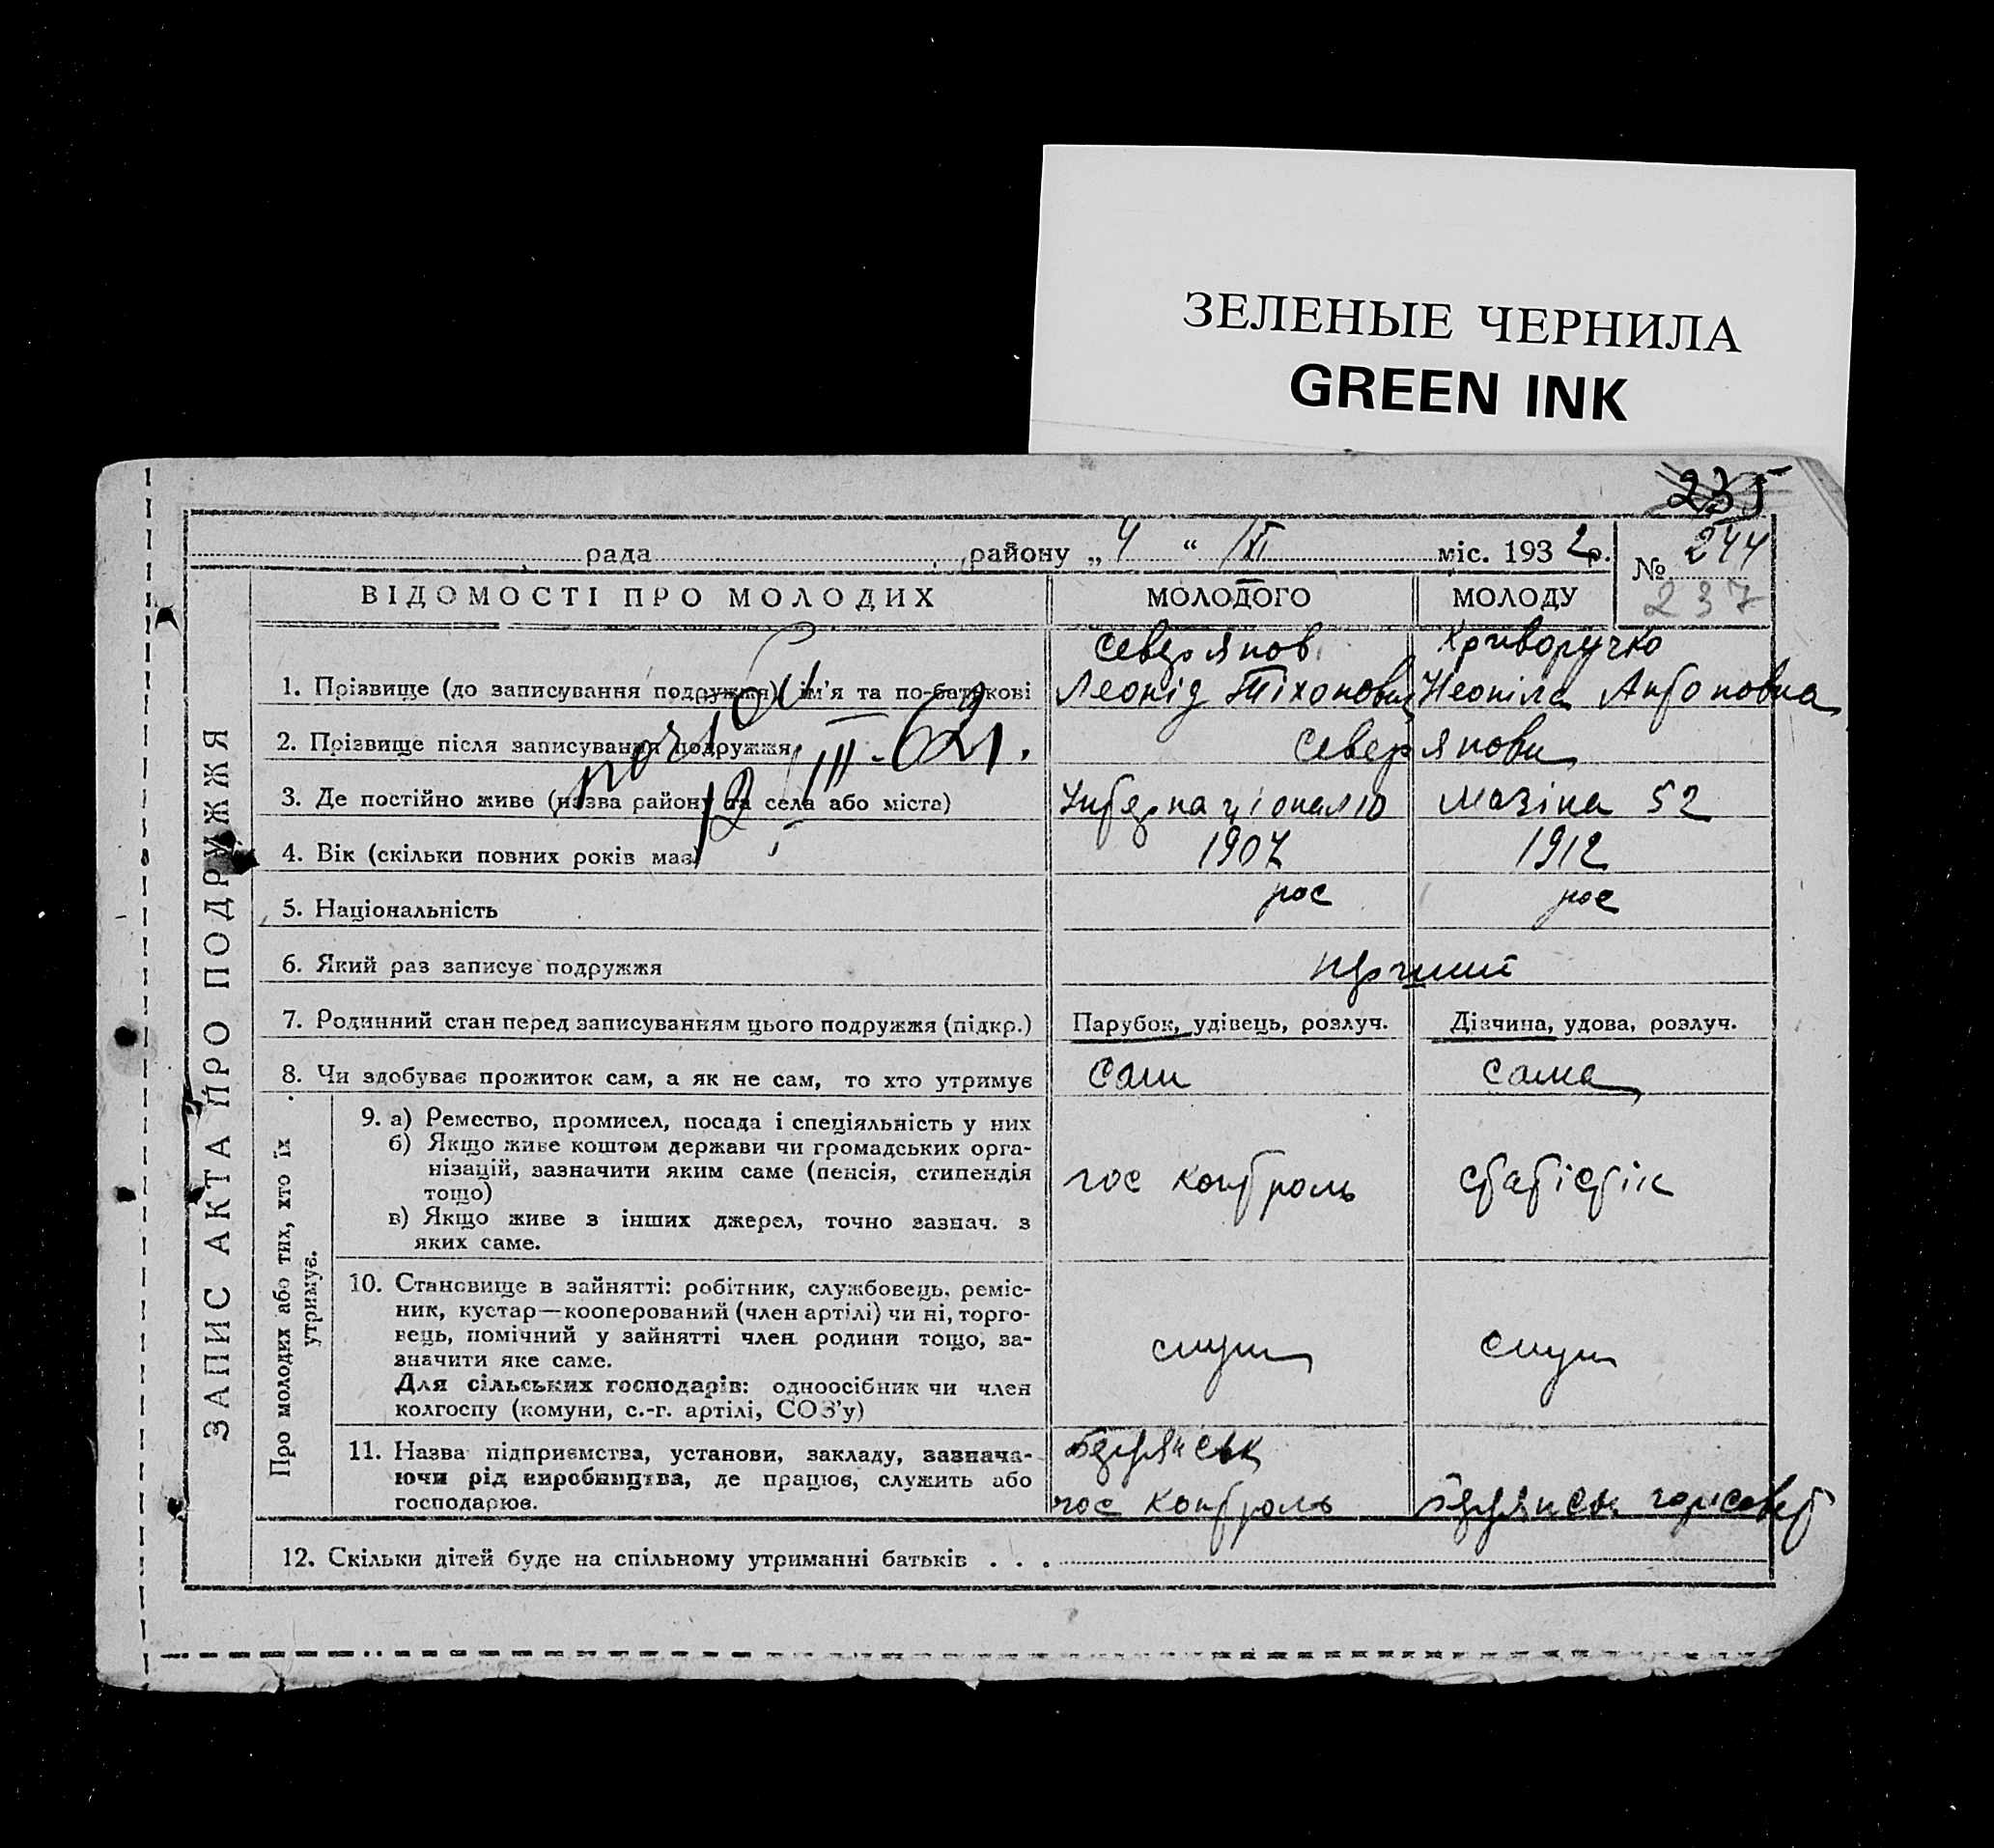 ЗЕЛЕНЫЕ ЧЕРНИЛА
GREEN INK
235
рада района „4“ XI міс. 1932 р.
№ 244
237
ЗАПИС АКТА ПРО ПОДРУЖЖЯ
ВІДОМОСТІ ПРО МОЛОДИХ МОЛОДОГО МОЛОДУ
Северянов Криворучко
1. Прізвище (до записування подружжя), ім'я та по-батькові Леонід Тіхонович Неоніла Антоновна
2. Прізвище після записування подружжя Северянови
12/III-62.
3. Де постійно живе (назва району та села або міста) Інтернаціональ Мазіна 52
4. Вік (скільки повних років має) 1907 1912
5. Національність рос рос
6. Який раз записує подружжя перший
7. Родинний стан перед записуванням цього подружжя (підкр.) Парубок, удівець, розлуч. Дівчина, удова, розлуч.
8. Чи здобуває прожиток сам, а як не сам, то хто утримує сам сама
Про молодих або тих, хто їх утримує.
9. а) Ремество, промисел, посада і спеціяльність у них
б) Якщо живе коштом держави чи громадських орга-
нізацій, зазначити яким саме (пенсія, стипендія
тощо) гос контроль статістік
в) Якщо живе з інших джерел, точно зазнач. з
яких саме.
10. Становище в зайнятті: робітник, службовець, реміс-
ник, кустар—кооперований (член артілі) чи ні, торго-
вець, помічний у зайнятті член родини тощо, за-
значити яке саме. служ служ
Для сільських господарів: одноосібник чи член
колгоспу (комуни, с.-г. артілі, СОЗ'у)
11. Назва підприємства, установи, закладу, зазнача- Бердянськ
ючи рід виробництва, де працює, служить або
господарює. гос контроль Бердянськ горсовет
12. Скільки дітей буде на спільному утриманні батьків . . .